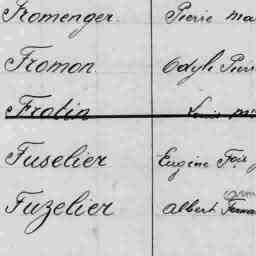 Fromenger Pierre Ma
Fromon Odyle Pier
Frotin Louis
Fuselier Eugène
Fuzelier Albert